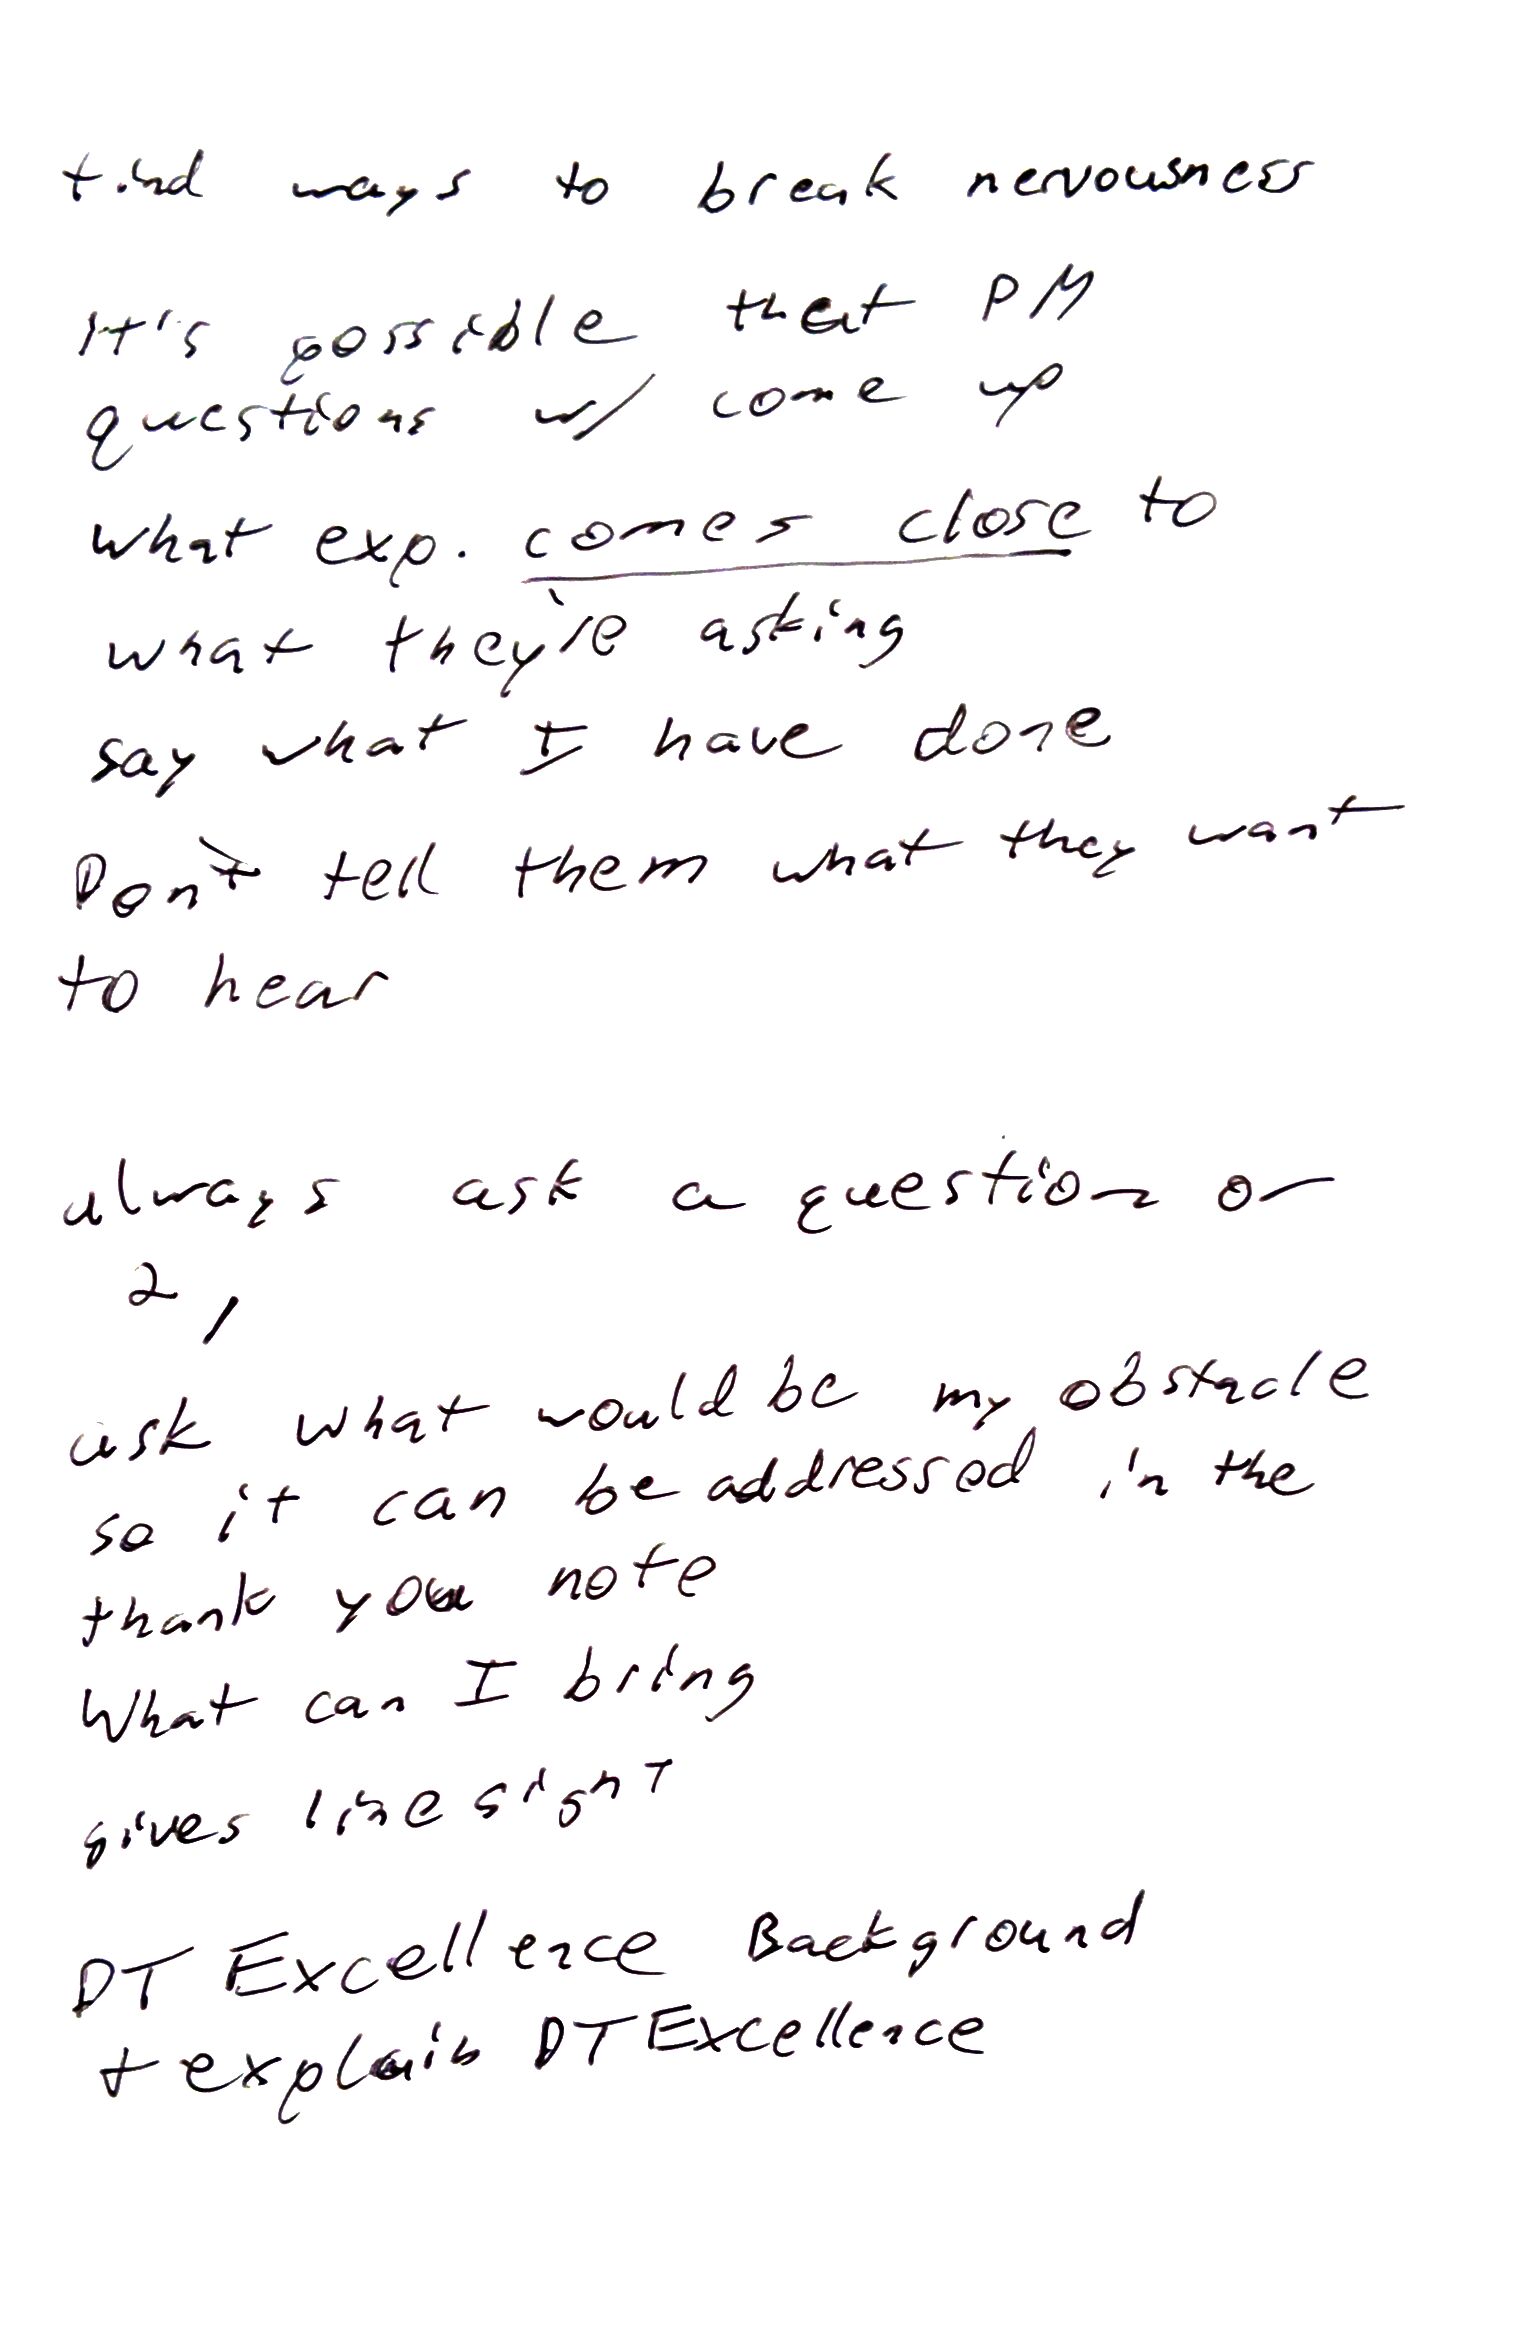 find ways to break nervousness
It's possible that PM
questions w/ come up
what exp. comes close to
what they're asking
say what I have done
Don't tell them what they want
to hear
always ask a question or
2,
ask what would be my obstacle
so it can be addressed in the
thank you note
What can I bring
gives line sight
DT Excellence Background
+ explain DT Excellence